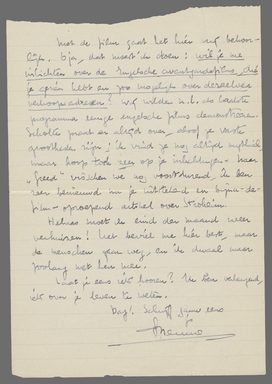 Met de film gaat het hier vrij behoor-
lijk. O ja, dat moet je doen: wil je me
inlichten over de Engelsche avantgardefilms, die
je gezien hebt en zoo mogelijk over derzelver
verhuuradressen? Wij wilden n.l. als laatste
programma eenige engelsche films demonstreeren.
Scholte praat er altijd over, alsof je vaste
grootheden zijn! Ik vind je nog altijd mythisch
maar hoop toch zeer op je inlichtingen. Naar
"Greed" visschen we nog voortdurend; ik ben
zeer benieuwd naar je uitstekend en bijna-de-
film-oproepend artikel over Stroheim.
Helaas moet ik eind der maand weer
verhuizen! Het beviel me hier best, maar
de menschen gaan weg, en ik dwaal maar
zoolang met hen mee.
Laat je eens iets hooren? Ik ben verlangend
iets over je leven te weten.
Dag! Schrijf gauw eens
Menno